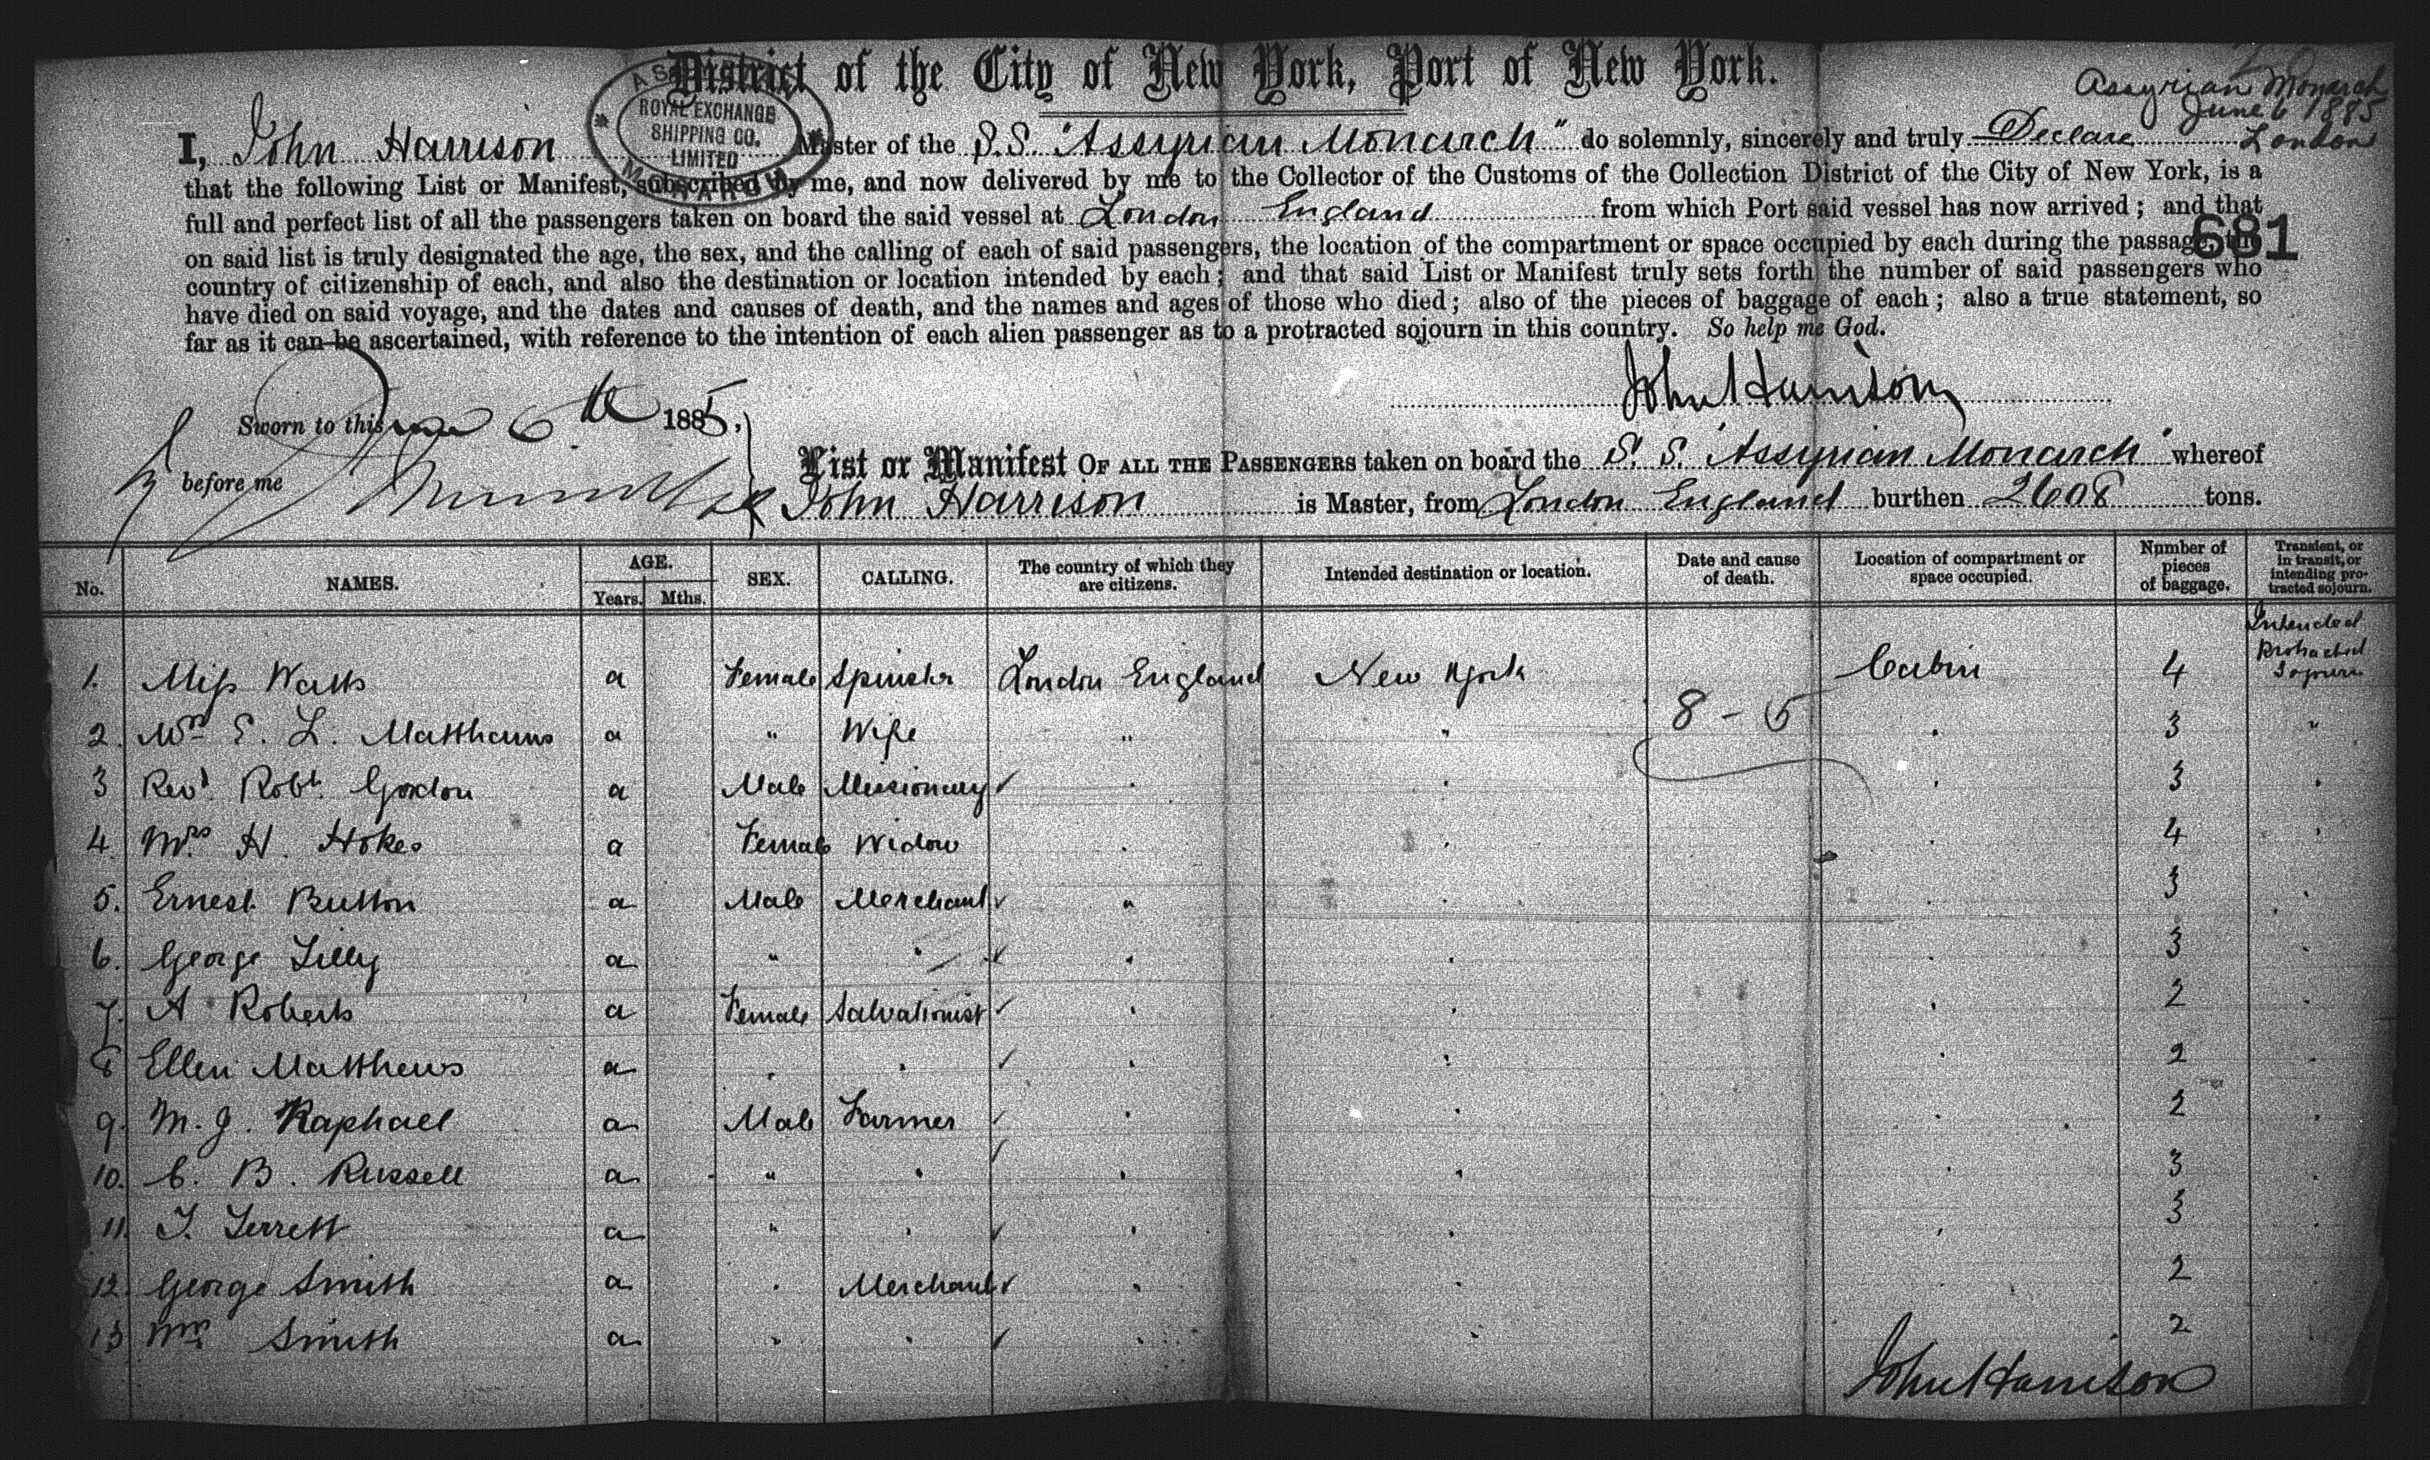 District of the City of New York, Port of New York.
Assyrian Monarch
June 6 1885
London
ASSYRIAN MONARCH
ROYAL EXCHANGE
SHIPPING CO.
LIMITED
I, John Harrison Master of the S.S. "Assyrian Monarch" do solemnly, sincerely and truly Declare
that the following List or Manifest, subscribed by me, and now delivered by me to the Collector of the Customs of the Collection District of the City of New York, is a
full and perfect list of all the passengers taken on board the said vessel at London England from which Port said vessel has now arrived; and that
681
on said list is truly designated the age, the sex, and the calling of each of said passengers, the location of the compartment or space occupied by each during the passage, the
country of citizenship of each, and also the destination or location intended by each; and that said List or Manifest truly sets forth the number of said passengers who
have died on said voyage, and the dates and causes of death, and the names and ages of those who died; also of the pieces of baggage of each; also a true statement, so
far as it can be ascertained, with reference to the intention of each alien passenger as to a protracted sojourn in this country. So help me God.
John Harrison
Sworn to this June 6th 1885,
before me
List or Manifest OF ALL THE PASSENGERS taken on board the S. S. "Assyrian Monarch" whereof
John Harrison is Master, from London England burthen 2608 tons.
No. NAMES. AGE. Years. Mths. SEX. CALLING. The country of which they are citizens. Intended destination or location. Date and cause of death. Location of compartment or space occupied. Number of pieces of baggage. Transient, or in transit, or intending protracted sojourn.
1. Miss Watts a Female Spinster London England New York Cabin 4 Intended Protracted Sojourn
8 - 5
2. Mrs E. L. Matthews a " Wife " " " 3 "
3 Revd. Robt. Gordon a Male Missionary " " " 3 "
4. Mrs H. Hokes a Female Widow " " " 4 "
5. Ernest Button a Male Merchant " " " 3 "
6. George Lilly a " " " " " 3 "
7. A Roberts a Female Salvationist " " " 2 "
8 Ellen Matthews a " " " " " 2 "
9. M. J. Raphael a Male Farmer " " " 2 "
10. C. B. Russell a " " " " " 3 "
11. T. Terrett a " " " " " 3 "
12. George Smith a " Merchant " " " 2 "
13 Wm Smith a " " " " 2 "
John Harrison